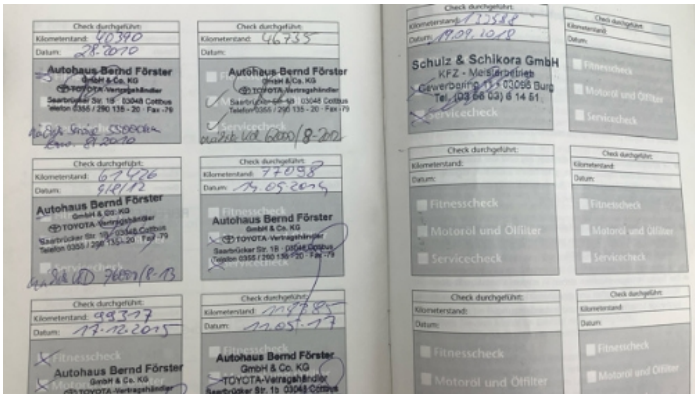 Check durchgeführt:
Kilometerstand: 40390
Datum: 28.2010
Autohaus Bernd Förster
GmbH & Co. KG
TOYOTA-Vertragshändler
Saarbrücker Str. 1b · 03048 Cottbus
Telefon 0355 / 290 135 - 20 · Fax -79
Servicecheck
Check durchgeführt:
Kilometerstand: 46735
Datum:
Autohaus Bernd Förster
GmbH & Co. KG
TOYOTA-Vertragshändler
Saarbrücker Str. 1b · 03048 Cottbus
Telefon 0355 / 290 135 - 20 · Fax -79
Servicecheck
Check durchgeführt:
Kilometerstand: 61426
Datum:
Autohaus Bernd Förster
GmbH & Co. KG
TOYOTA-Vertragshändler
Saarbrücker Str. 1b · 03048 Cottbus
Telefon 0355 / 290 135 - 20 · Fax -79
Check durchgeführt:
Kilometerstand: 77098
Datum: 14.05.2014
Autohaus Bernd Förster
GmbH & Co. KG
TOYOTA-Vertragshändler
Saarbrücker Str. 1b · 03048 Cottbus
Telefon 0355 / 290 135 - 20 · Fax -79
Check durchgeführt:
Kilometerstand: 99317
Datum: 17.12.2015
Fitnesscheck
Autohaus Bernd Förster
GmbH & Co. KG
TOYOTA-Vertragshändler
Check durchgeführt:
Kilometerstand: 118785
Datum: 11.05.17
Autohaus Bernd Förster
GmbH & Co. KG
TOYOTA-Vertragshändler
Saarbrücker Str. 1b · 03048 Cottbus
Check durchgeführt:
Kilometerstand: 132588
Datum: 19.09.2018
Schulz & Schikora GmbH
KFZ - Meisterbetrieb
Gewerbering 11 · 03096 Burg
Tel. (03 56 03) 6 14 51
Servicecheck
Check durchgeführt:
Kilometerstand:
Datum:
Fitnesscheck
Motoröl und Ölfilter
Servicecheck
Check durchgeführt:
Kilometerstand:
Datum:
Fitnesscheck
Motoröl und Ölfilter
Servicecheck
Check durchgeführt:
Kilometerstand:
Datum:
Fitnesscheck
Motoröl und Ölfilter
Servicecheck
Check durchgeführt:
Kilometerstand:
Datum:
Fitnesscheck
Motoröl und Ölfilter
Check durchgeführt:
Kilometerstand:
Datum:
Fitnesscheck
Motoröl und Ölfilter